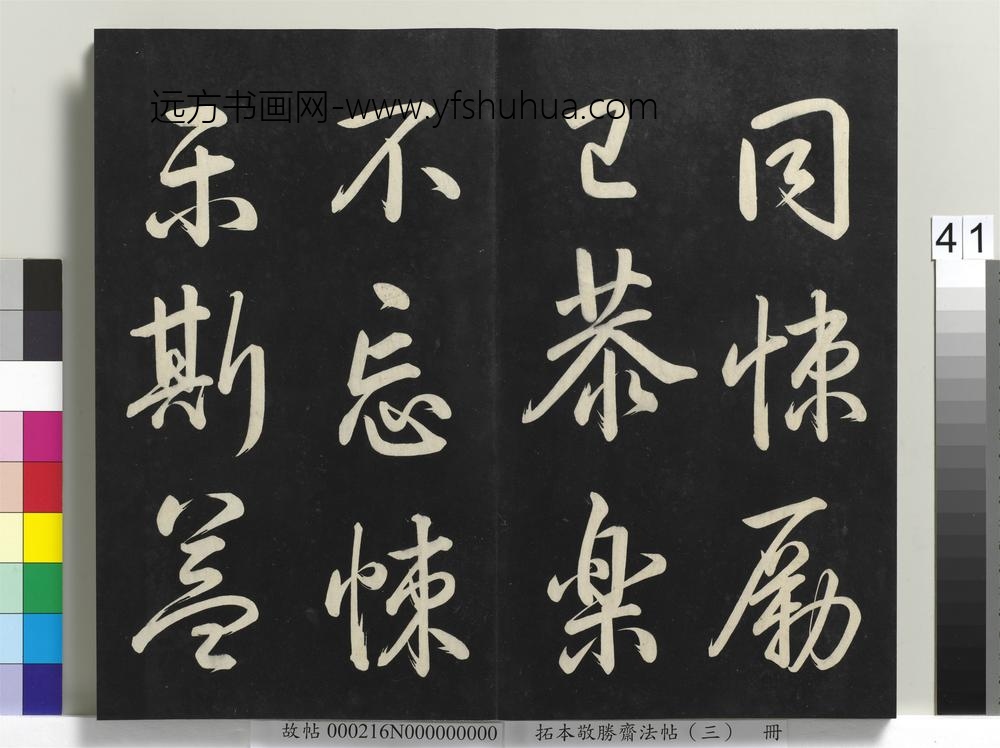 远方书画网-www.yfshuhua.com
同悚勵
已恭樂
不忘悚
乐斯益
41
故帖 000216N000000000 拓本敬勝齋法帖（三） 冊